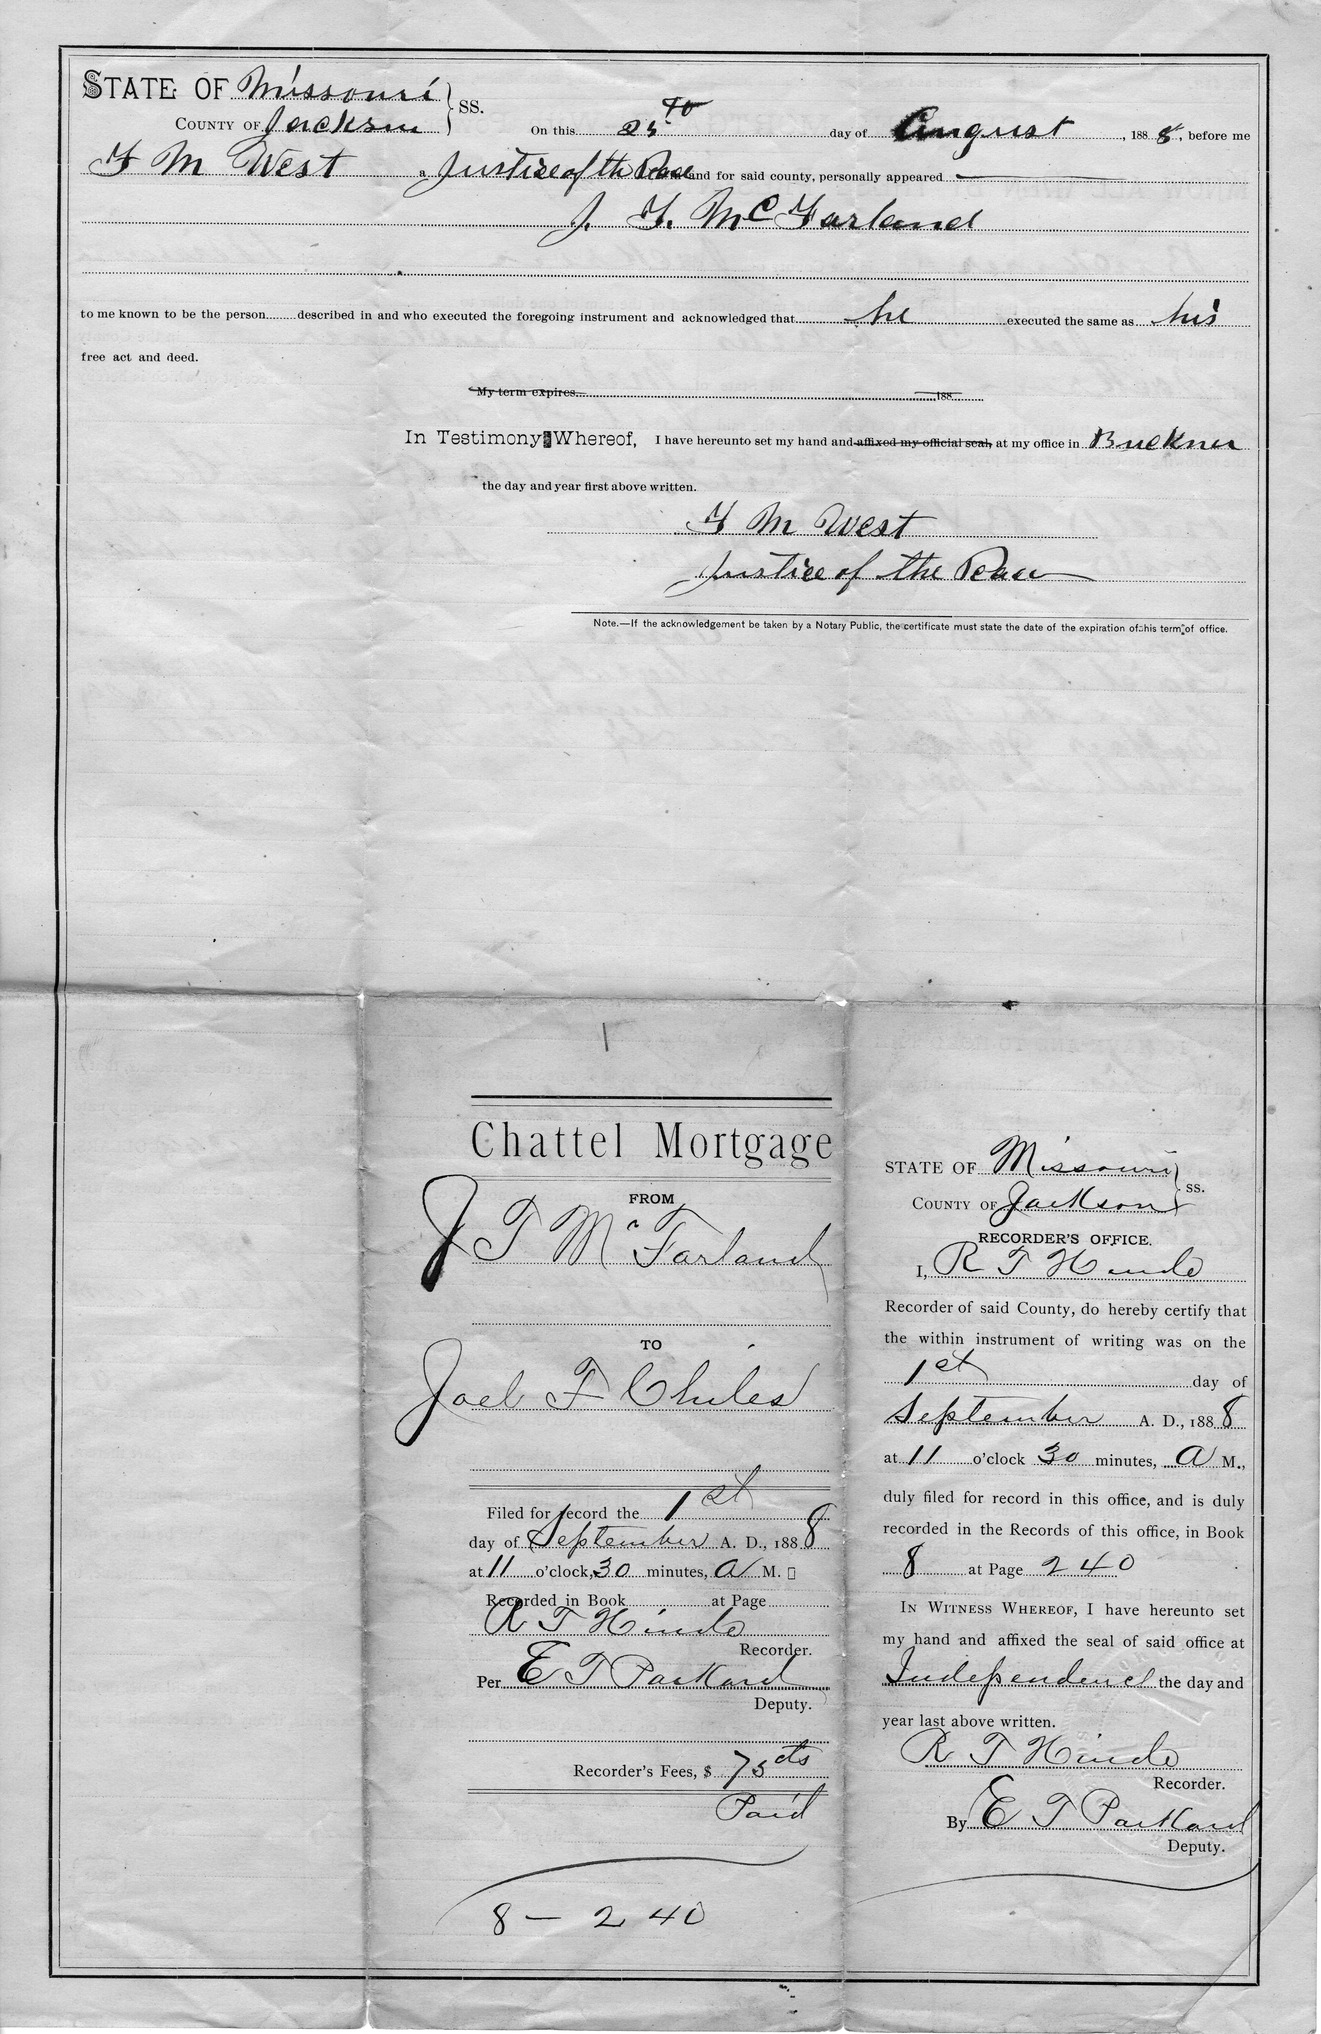 STATE OF Missouri } SS.
COUNTY OF Jackson
On this 25th day of August, 1888, before me
F M West a Justice of the Peace and for said county, personally appeared
J. F. McFarland
to me known to be the person described in and who executed the foregoing instrument and acknowledged that he executed the same as his
free act and deed.
My term expires 188
In Testimony Whereof, I have hereunto set my hand and affixed my official seal, at my office in Buckner
the day and year first above written.
F M West
Justice of the Peace
Note.—If the acknowledgement be taken by a Notary Public, the certificate must state the date of the expiration of his term of office.
Chattel Mortgage
FROM
J T McFarland
TO
Joel F Chiles
Filed for record the 1st
day of September A. D., 1888
at 11 o'clock, 30 minutes, A M.
Recorded in Book at Page
R T Hinde
Recorder.
Per E T Packard
Deputy.
Recorder's Fees, $ 75cts
Paid
8 – 240
STATE OF Missouri } SS.
COUNTY OF Jackson
RECORDER'S OFFICE.
I, R T Hinde
Recorder of said County, do hereby certify that
the within instrument of writing was on the
1st day of
September A. D., 1888
at 11 o'clock 30 minutes, A M.,
duly filed for record in this office, and is duly
recorded in the Records of this office, in Book
8 at Page 240
IN WITNESS WHEREOF, I have hereunto set
my hand and affixed the seal of said office at
Independence the day and
year last above written.
R T Hinde
Recorder.
By E T Packard
Deputy.